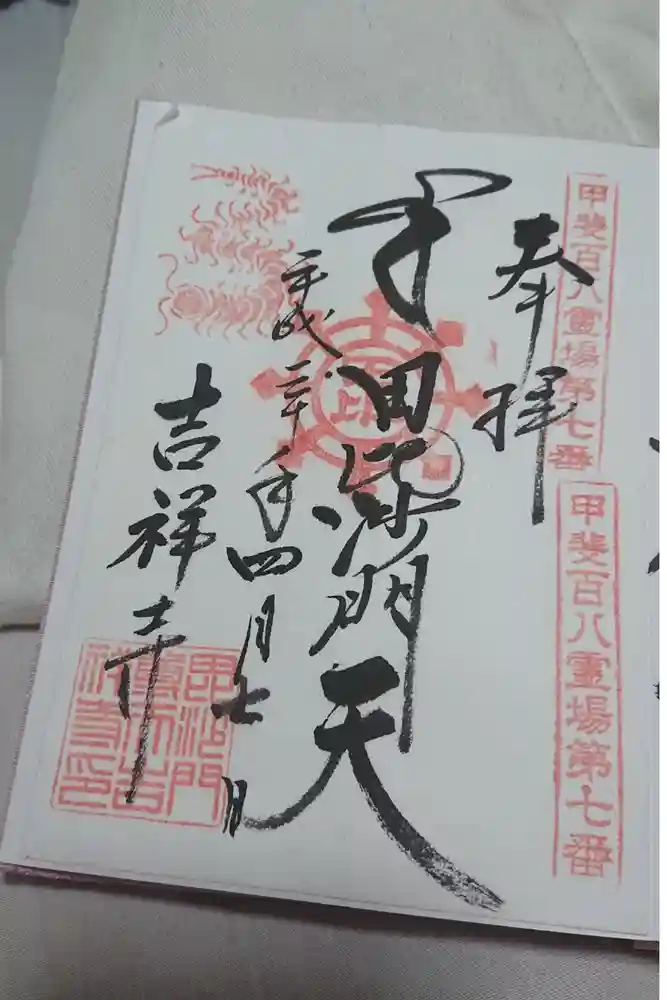 甲斐百八霊場第七番
甲斐百八霊場第七番
奉拝
毘沙門天
平成三十年四月七日
吉祥寺
毘沙門
祥寺印